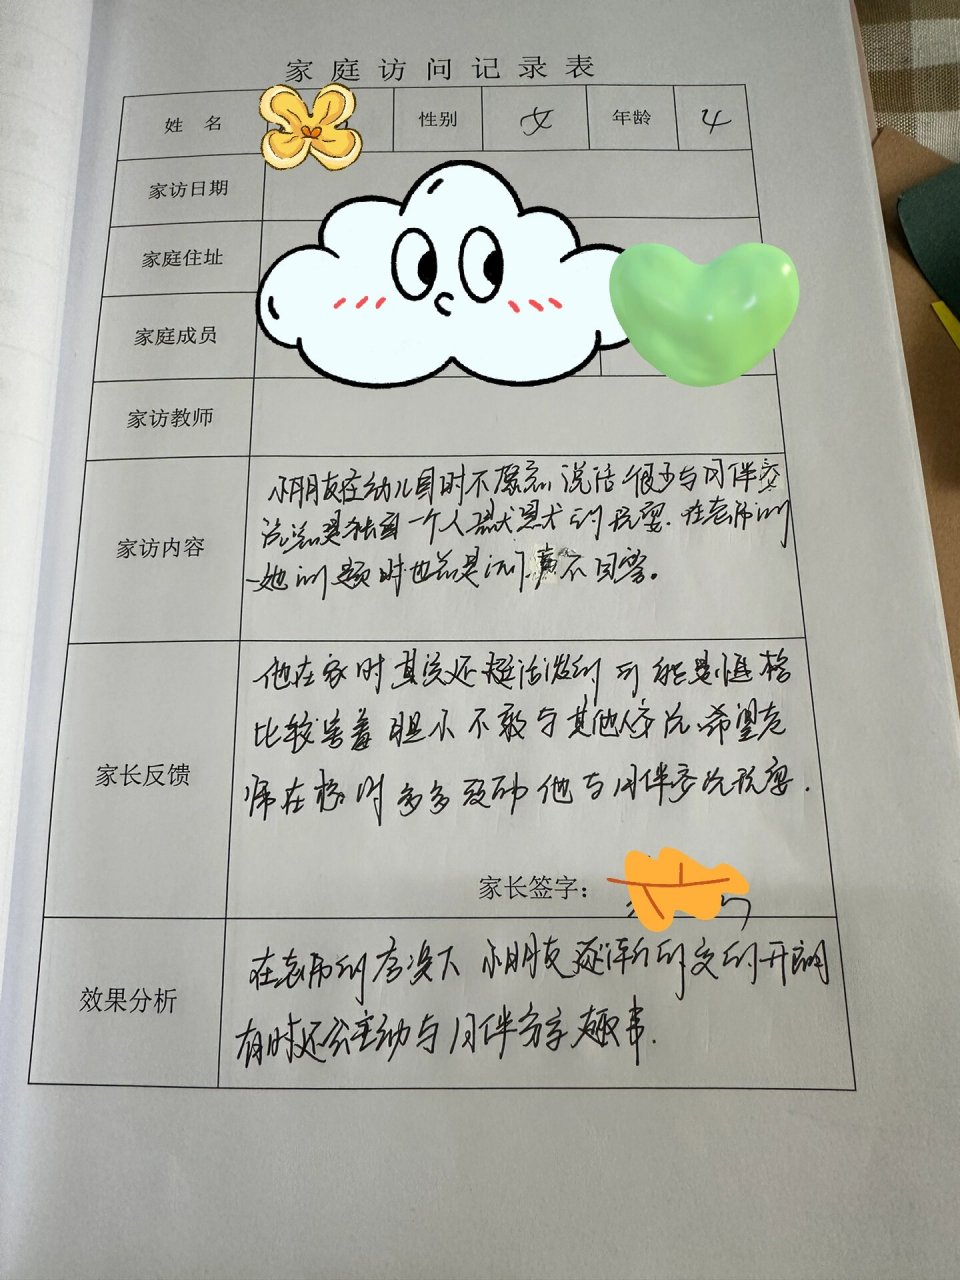 家庭访问记录表
姓 名 性别 女 年龄 4
家访日期
家庭住址
家庭成员
家访教师
家访内容
小朋友在幼儿园时不愿意说话 很少与同伴交
流总是独自一个人默默的玩耍. 在老师问
她问题时也总是沉默不回答。
家长反馈
他在家时其实还挺活泼的 可能是性格
比较害羞 胆小 不敢与其他人交流.希望老
师在校时多多鼓励 他与同伴交流玩耍.
家长签字：
效果分析
在老师的 下 小朋友逐渐的变的开朗
有时还会主动与同伴分享趣事.